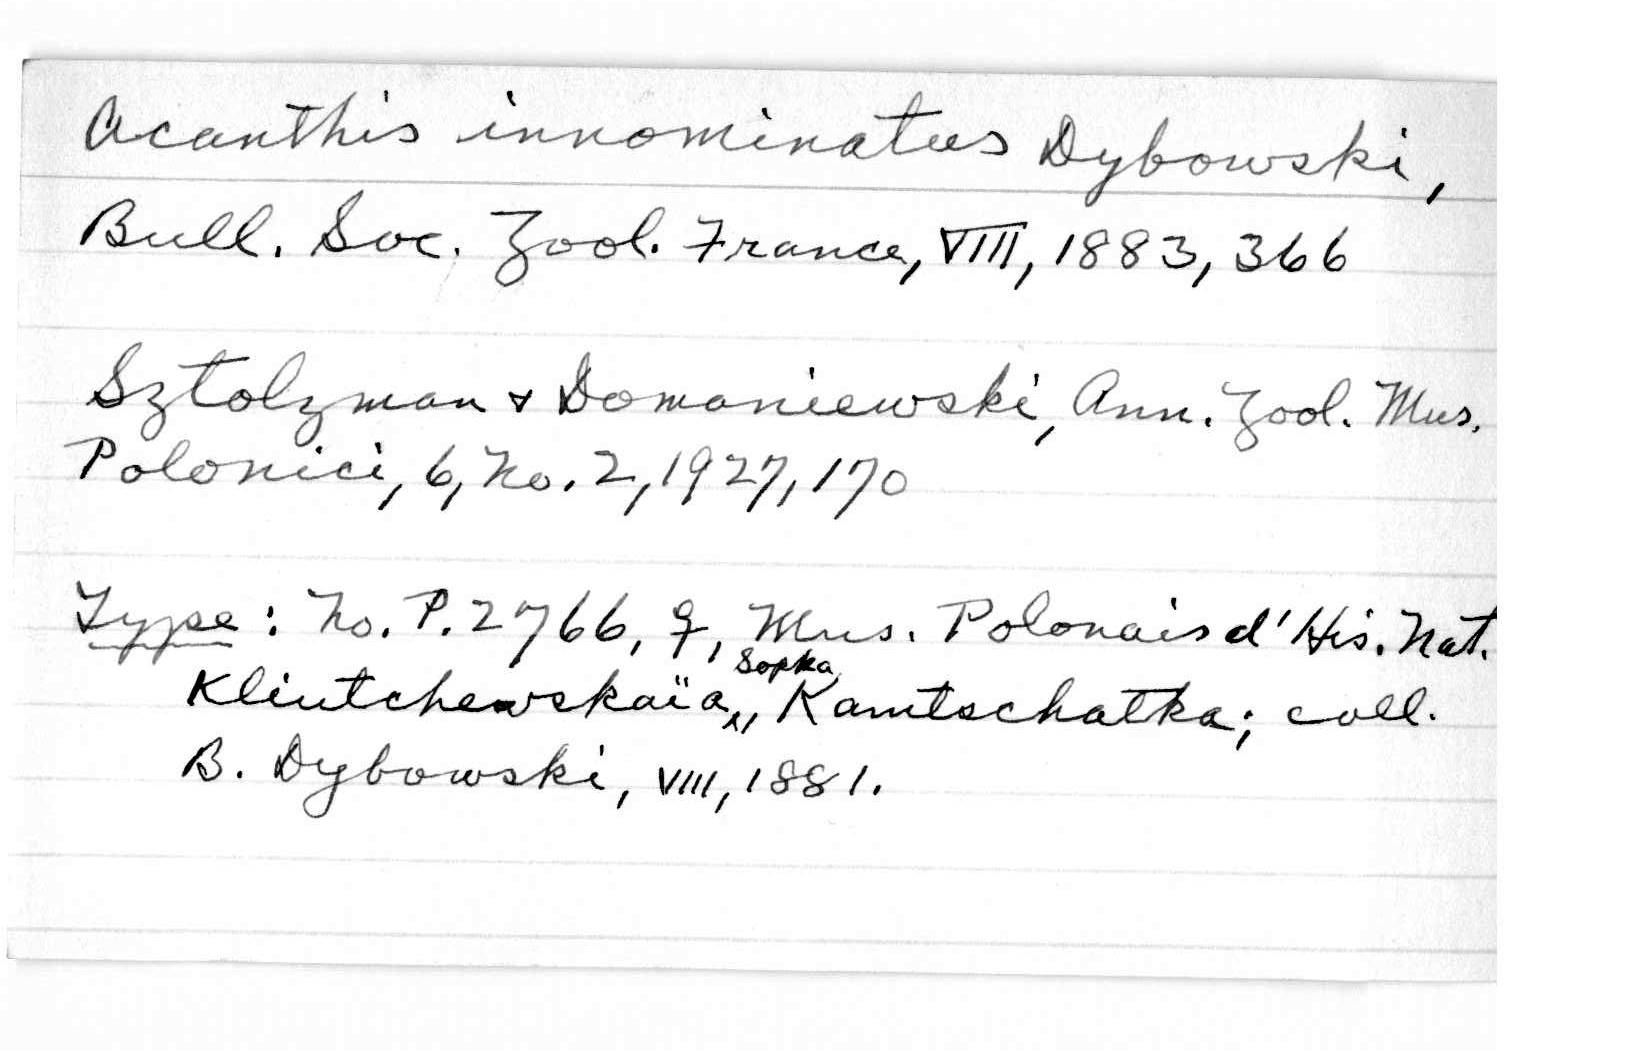 Acanthis innominatus Dybowski,
Bull. Soc. Zool. France, VIII, 1883, 366
Sztolzman & Domaniewski, Ann. Zool. Mus.
Polonici, 6, No. 2, 1927, 170
Type: No. P. 2766, ♀, Mus. Polonais d'His. Nat.
Kliutchewskaïa Sopka, Kamtschatka; coll.
B. Dybowski, VIII, 1881.